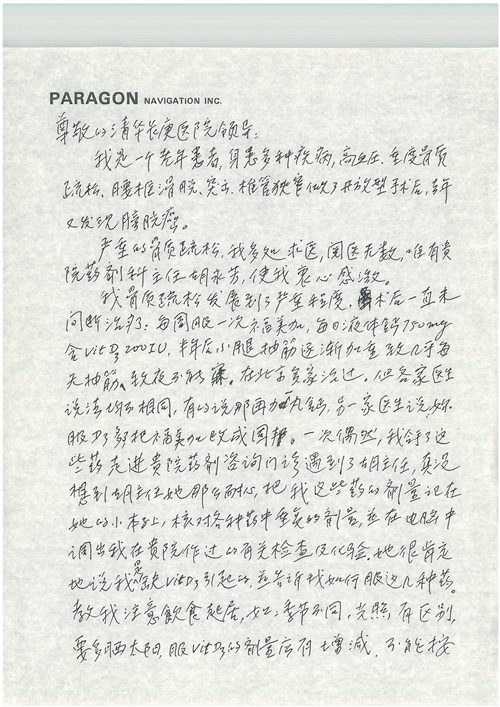 PARAGON NAVIGATION INC.
尊敬的清华长庚医院领导:
我是一个老年患者,身患多种疾病,高血压、重度骨质
疏松、腰椎滑脱、突出、椎管狭窄做了开放型手术后,去年
又发现膀胱癌。
严重的骨质疏松,我多处求医,阅医无数,唯有贵
院药剂科主任胡永芳,使我衷心感激。
我骨质疏松发展到了严重程度,术后一直未
间断治疗:每周服一次福美加,每日液体钙750mg
含VitD3 200IU,半年后小腿抽筋逐渐加重致几乎每
天抽筋、致夜不能寐。在北京多家治过,但各家医生
说法均不相同,有的说那再加丸钙,另一家医生说
服
把福美加改成
。一次偶然,我拿了这
些药走进贵院药剂咨询门诊遇到了胡主任,真没
想到胡主任她那么耐心,把我这些药的剂量记在
她的小本上,核对各种药中重复的剂量,并在电脑中
调出我在贵院作过的有关检查及化验,她很肯定
地说我是缺VitD3引起的,并告诉我如何服这几种药。
教我注意飲食起居,如:季节不同,光照有区别,
要多晒太阳,服VitD3的剂量应有增减,不能按